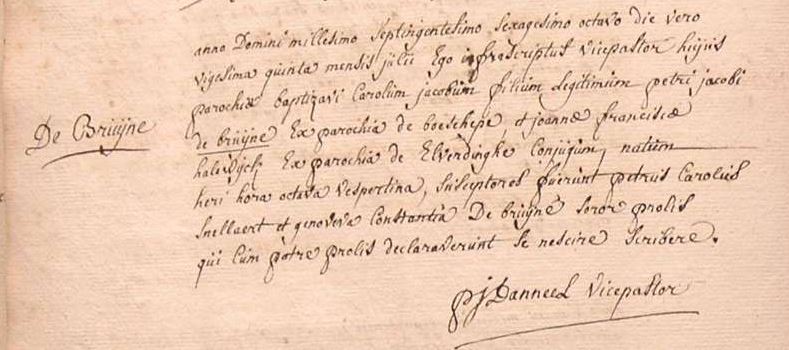 anno Domini millesimo Septingentesimo Sexagesimo octavo die vero
vigesima quinta mensis julii Ego infrascriptus vicepastor hujus
parochiæ baptizavi Carolum jacobum filium legitimum petri jacobi
De Bruijne
de bruijne Ex parochia de boeschepe, et joannæ franciscæ
halewijck Ex parochia de Elverdinghe Conjugum, natum
heri hora octava vespertina, Susceptores fuerunt petrus Carolus
Snellaert et genoveva Constantia De bruijne soror prolis
qui Cum patre prolis declaraverunt se nescire scribere.
pjDanneel vicepastor